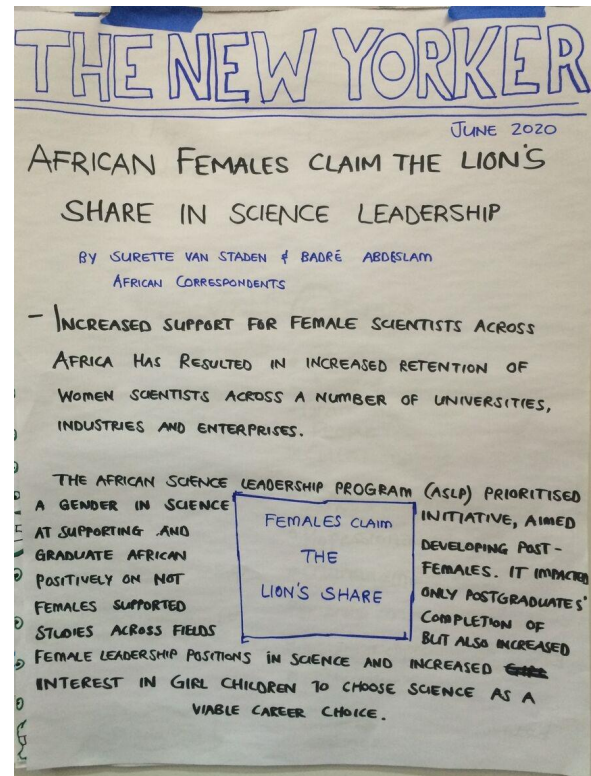 THE NEW YORKER
JUNE 2020
AFRICAN FEMALES CLAIM THE LION'S
SHARE IN SCIENCE LEADERSHIP
BY SURETTE VAN STADEN & BADRÉ ABDESLAM
AFRICAN CORRESPONDENTS
- INCREASED SUPPORT FOR FEMALE SCIENTISTS ACROSS
AFRICA HAS RESULTED IN INCREASED RETENTION OF
WOMEN SCIENTISTS ACROSS A NUMBER OF UNIVERSITIES,
INDUSTRIES AND ENTERPRISES.
THE AFRICAN SCIENCE LEADERSHIP PROGRAM (ASLP) PRIORITISED
A GENDER IN SCIENCE INITIATIVE, AIMED
AT SUPPORTING AND DEVELOPING POST-
GRADUATE AFRICAN FEMALES. IT IMPACTED
POSITIVELY ON NOT ONLY POSTGRADUATES'
FEMALES SUPPORTED COMPLETION OF
STUDIES ACROSS FIELDS BUT ALSO INCREASED
FEMALES CLAIM
THE
LION'S SHARE
FEMALE LEADERSHIP POSITIONS IN SCIENCE AND INCREASED
INTEREST IN GIRL CHILDREN TO CHOOSE SCIENCE AS A
VIABLE CAREER CHOICE.